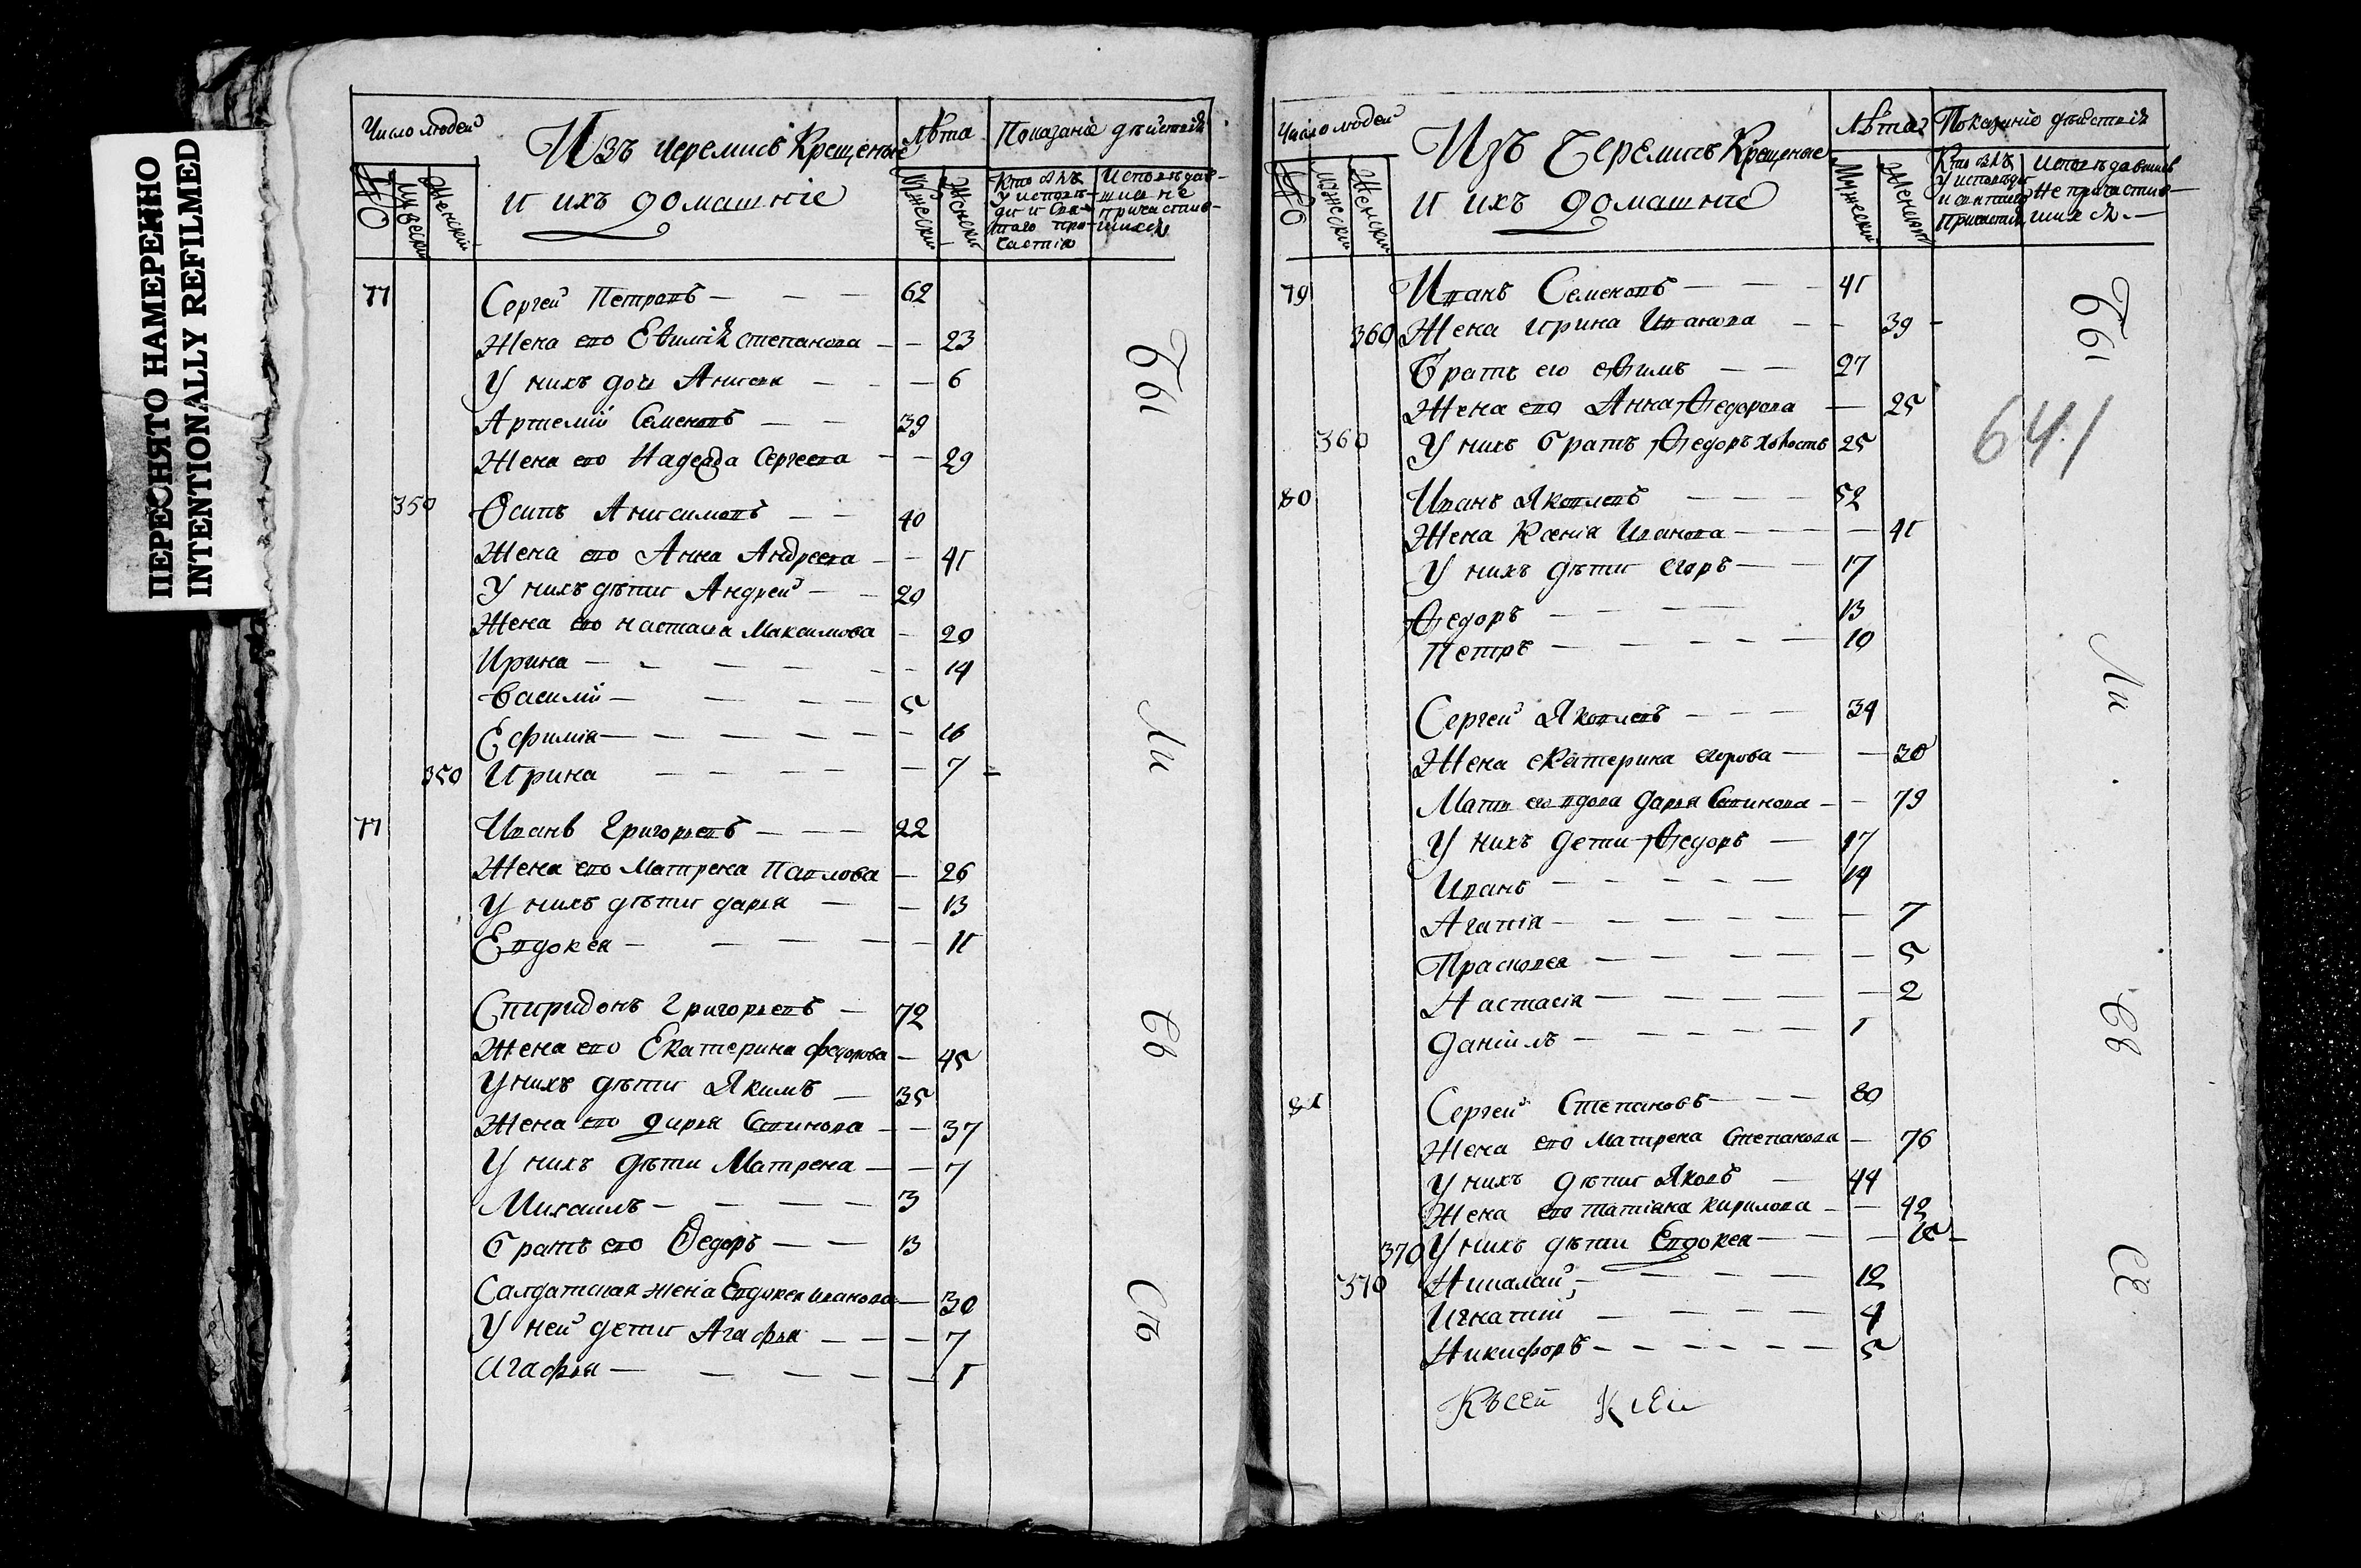 ПЕРЕСНЯТО НАМЕРЕННО
INTENTIONALLY REFILMED
Число людей
Изъ черемисъ Крещеные
и ихъ домашніе
Лѣта
Показаніе дѣйствій
Мужеский
Женский
Мужеский
Женский
Кто былъ у исповѣди и святаго причастія
Исповѣдавшися не причастившихся
77 Сергей Петровъ 62
Жена его Евѳимія степанова 23
У нихъ дочь Анисья 6
Артемій Семеновъ 39
Жена его Надежда Сергеева 29
350 Осипъ Анисимовъ 40
Жена его Анна Андреева 41
У нихъ дѣти Андрей 20
Жена его настасья Максимова 20
Ирина 14
Василий 5
Ефимія 16
350 Ирина 7
77 Иванъ Григорьевъ 22
Жена его Матрена Павлова 26
У нихъ дѣти дарья 13
Евдокея 11
Спиридонъ Григорьевъ 72
Жена его Екатерина федорова 45
У нихъ дѣти Якимъ 35
Жена его дарья Савинова 37
У нихъ дѣти Матрена 7
Михаилъ 3
братъ его Ѳедоръ 13
Салдатская жена Евдокея иванова 30
У ней дети Агафья 7
Агафья 1
бы
Ли
Съ
Число людей
Изъ Черемисъ Крещеные
и ихъ домашніе
Лѣта
Показаніе дѣйствій
Мужеский
Женский
Мужеский
Женский
Кто былъ у исповѣди и святаго причастія
исповѣдавшись не причастившихся
79 Иванъ Семеновъ 41
360 Жена Ирина Иванова 39
братъ его еѳимъ 27
Жена его Анна Ѳедорова 25
360 У нихъ братъ Ѳедоръ холостъ 25
641
80 Иванъ Яковлевъ 52
Жена Ксенія Иванова 41
У нихъ дѣти егоръ 17
Ѳедоръ 13
Петръ 10
Сергей Яковлевъ 34
Жена екатерина егорова 30
Мать его вдова дарья Савинова 79
У нихъ дети Ѳедоръ 17
Иванъ 14
Агапія 7
Прасковея 5
Настасія 2
даніилъ 1
81 Сергей Степановъ 80
Жена его Матрена Степанова 76
У нихъ дѣти Яковъ 44
Жена его татіяна кирилова 42
370 У нихъ дѣти Евдокея
370 Николай 12
Игнатий 4
Никифоръ 5
бы
Ли